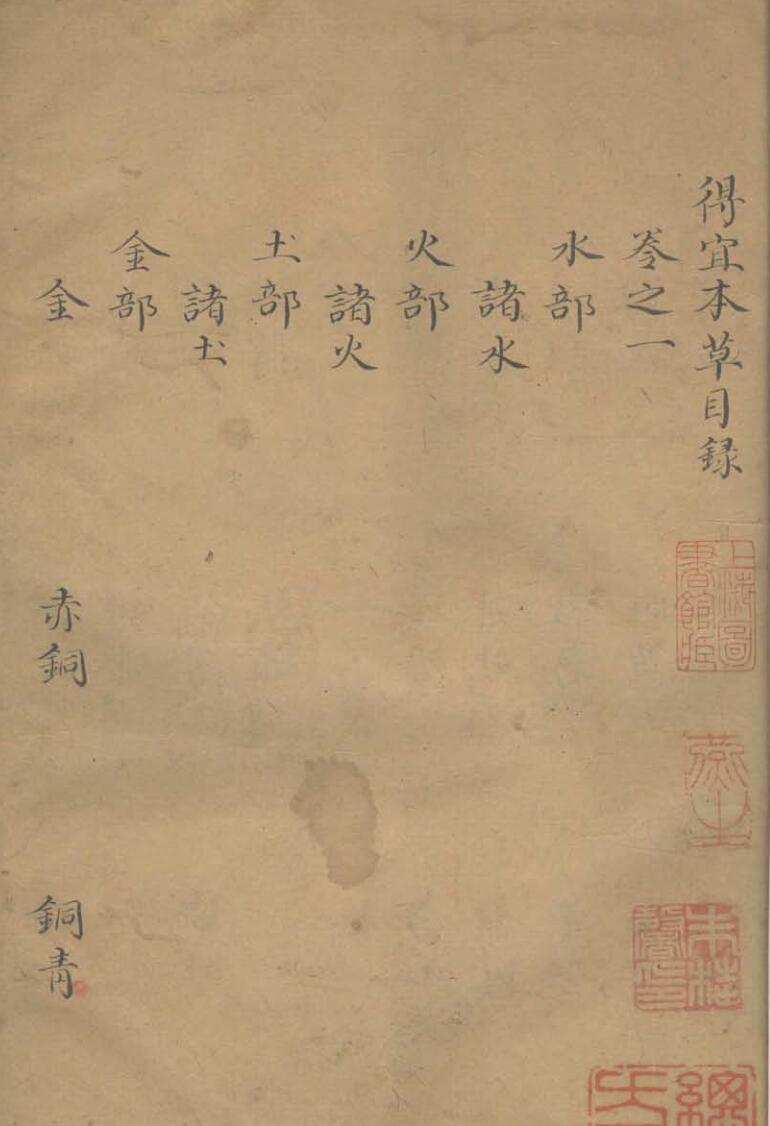 得宜本草目録
卷之一
水部
諸水
火部
諸火
土部
諸土
金部
金 赤銅 銅青
上海圖書館藏